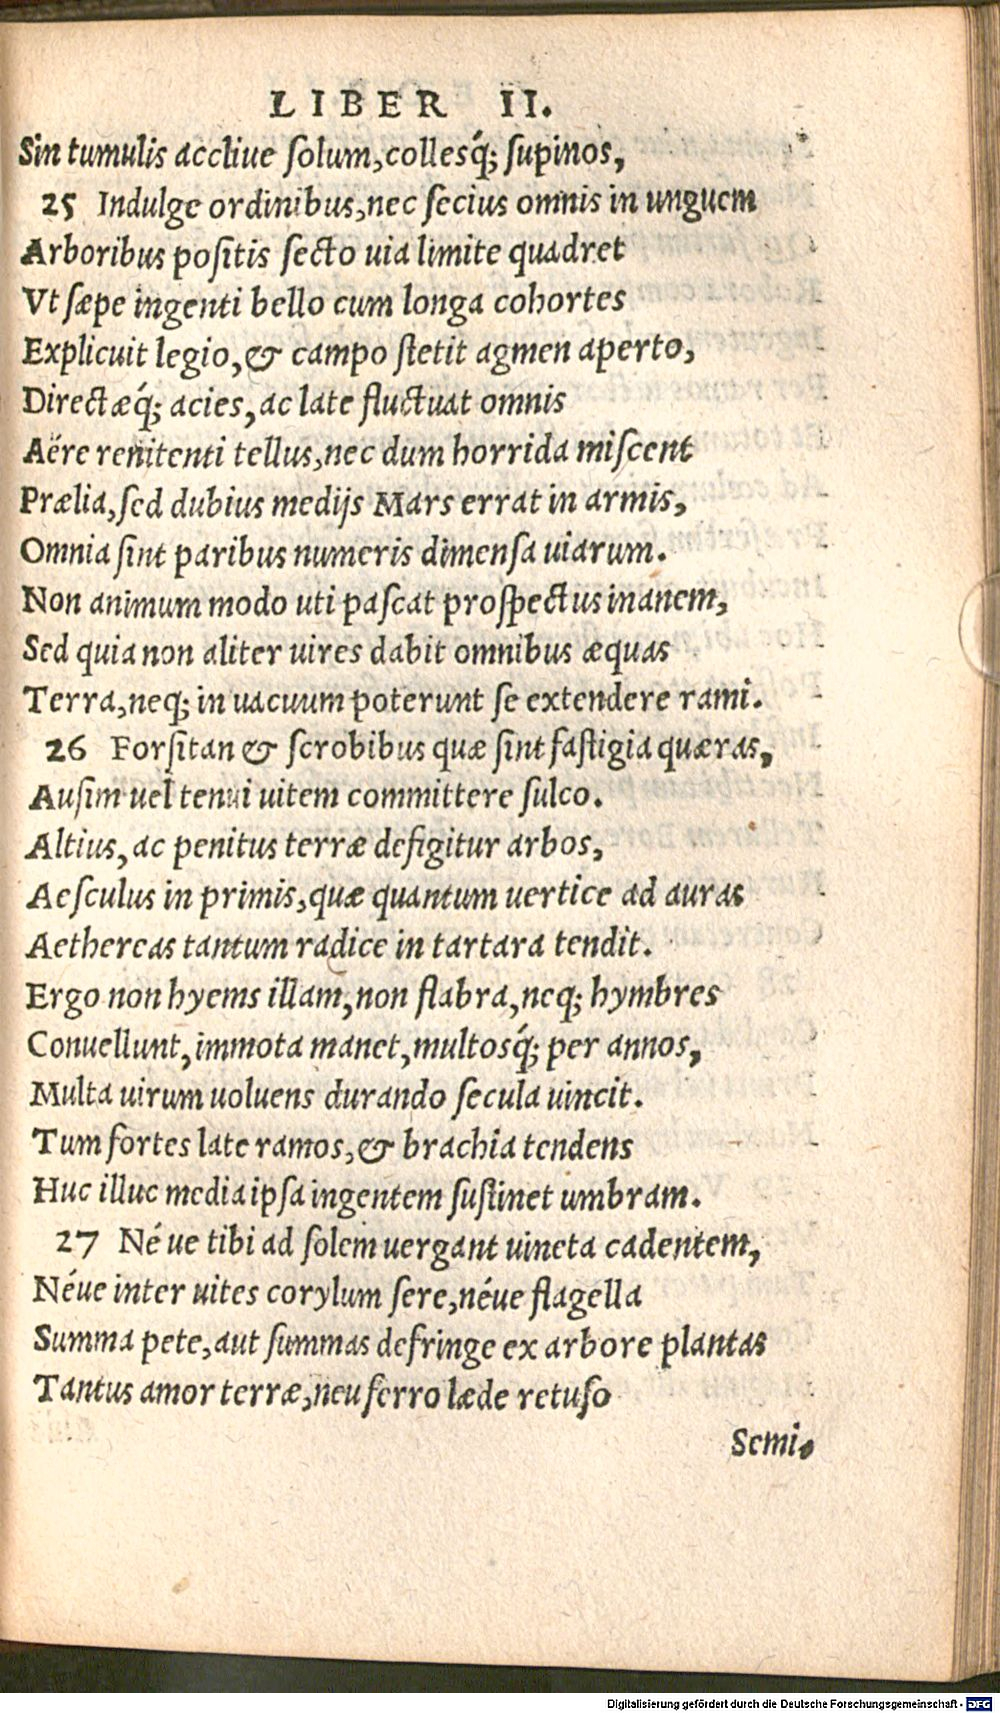 LIBER II.
Sin tumulis accliue ſolum,collesq́; ſupinos,
25 Indulge ordinibus,nec ſecius omnis in unguem
Arboribus poſitis ſecto uia limite quadret
Vt ſæpe ingenti bello cum longa cohortes
Explicuit legio,& campo ſtetit agmen aperto,
Directæq́; acies,ac late fluctuat omnis
Aëre renitenti tellus,nec dum horrida miſcent
Prælia,ſed dubius medijs Mars errat in armis,
Omnia ſint paribus numeris dimenſa uiarum.
Non animum modo uti paſcat proſpectus inanem,
Sed quia non aliter uires dabit omnibus æquas
Terra,neq; in uacuum poterunt ſe extendere rami.
26 Forſitan & ſcrobibus quæ ſint faſtigia quæras,
Auſim uel tenui uitem committere ſulco.
Altius, ac penitus terræ defigitur arbos,
Aeſculus in primis,quæ quantum uertice ad auras
Aethereas tantum radice in tartara tendit.
Ergo non hyems illam,non flabra,neq; hymbres
Conuellunt,immota manet,multosq́; per annos,
Multa uirum uoluens durando ſecula uincit.
Tum fortes late ramos,& brachia tendens
Huc illuc media ipſa ingentem ſuſtinet umbram.
27 Né ue tibi ad ſolem uergant uineta cadentem,
Néue inter uites corylum ſere,néue flagella
Summa pete,aut ſummas defringe ex arbore plantas
Tantus amor terræ,neu ferro læde retuſo
Semi,
Digitalisierung gefördert durch die Deutsche Forschungsgemeinschaft - DFG